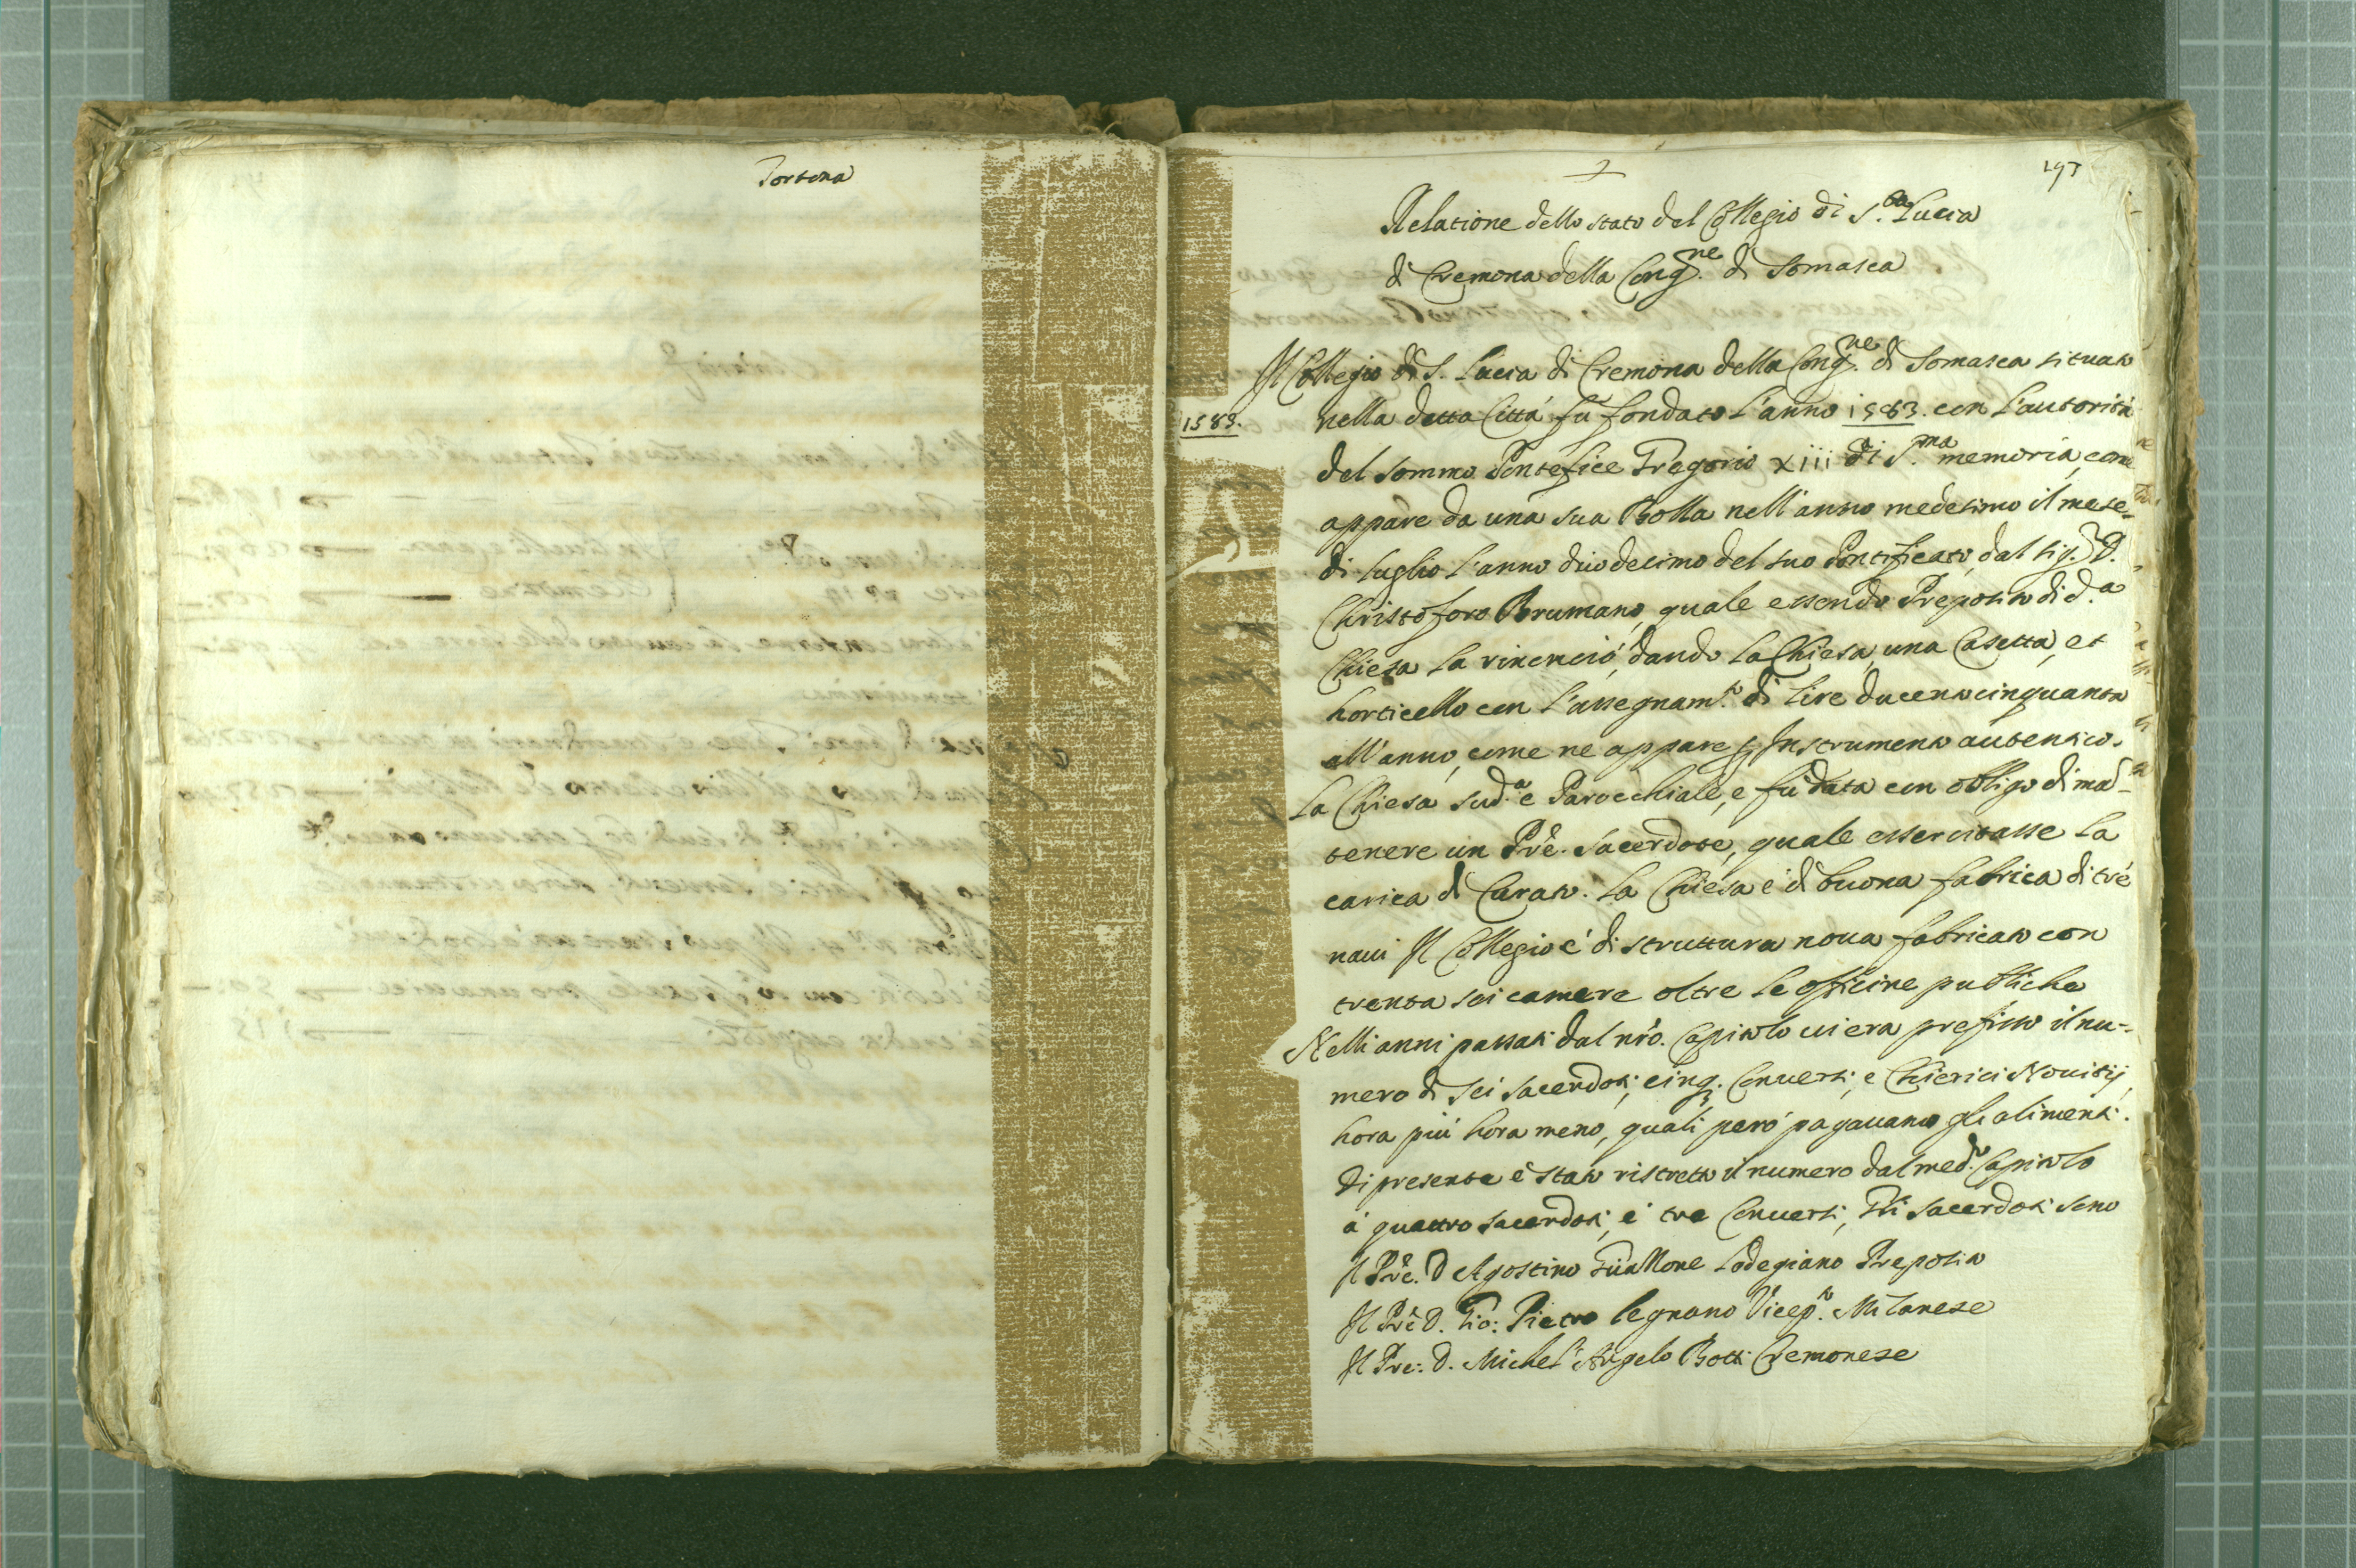 Tortona
193
Relatione dello stato del Collegio di S.ta Lucia
di Cremona della Cong.ne di Somasca
Il Collegio di S. Lucia di Cremona della Cong.ne di Somasca situato
1583.
nella detta Città fù fondato l'anno 1583. con l'autorità
del sommo Pontefice Gregorio xiii di S.ma memoria, come
appare da una sua Bolla nell'anno medesimo il mese
di luglio l'anno duodecimo del suo Pontificato, dal sig.r D.
Christoforo Brumano, quale essendo Preposito di d.a
Chiesa la rinonciò, dando la Chiesa, una Casetta, et
horticello con l'assegnam.to di lire ducento cinquanta
all'anno, come ne appare p Instrumento autentico.
La Chiesa sud.a è Parocchiale, e fù data con obligo di ma-
tenere un Prê. Sacerdote, quale essercitasse la
carica di Curato. La Chiesa è di buona fabrica di trè
naui Il Collegio è di struttura noua fabricato con
trenta sei camere oltre le officine publiche
Nelli anni passati dal nrô. Capitolo ui era prefisso il nu-
mero di sei sacerdoti, cinq. Conuersi, e Chierici Nouitij,
hora più hora meno, quali però pagauano gli alimenti.
Di presente è stato ristretto il numero dal med.o Capitolo
à quattro sacerdoti, e tre Conuersi, Gli sacerdoti sono
Il Prê. D Agostino Guallone Lodegiano Preposito
Il Prê D. Gio: Pietro legnano Vicep.to Milanese
Il Pre: D. Michel'Angelo Botti Cremonese